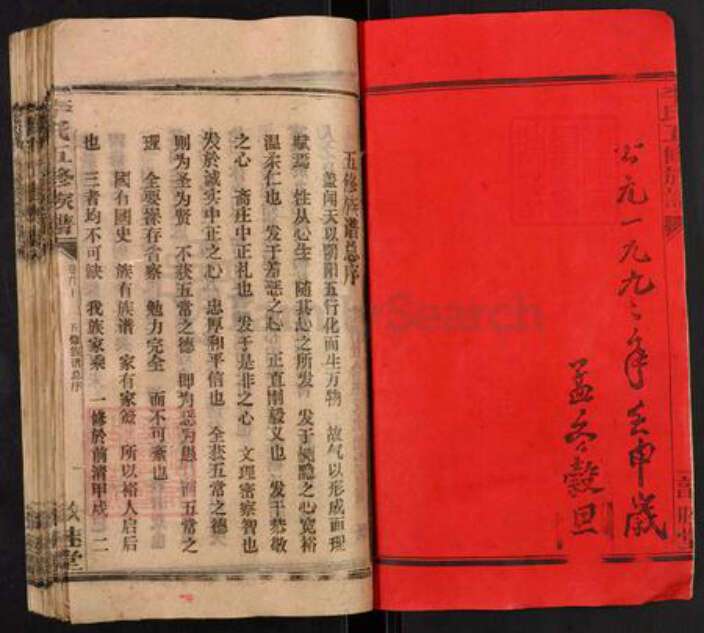 公元一九九二年壬申歲
孟冬穀旦
五修族譜总序
盖闻天以阴阳五行化而生万物 故气以形成而理
赋焉 性从心生 随其心之所发 发于恻隐之心宽裕
温柔仁也 发于羞恶之心 正直刚毅义也 发于恭敬
之心 斋庄中正礼也 发于是非之心 文理密察智也
发於诚实中正之心 忠厚和平信也 全获五常之德
则为圣为贤 不获五常之德 即为恶为愚 五常之
理 全要操存省察 勉力完全 而不可紊也
國有國史 族有族谱 家有家 所以裕人启后
也 三者均不可缺 我族家乘 一修於前清甲戍 二
李氏五修家譜
五修族谱总序